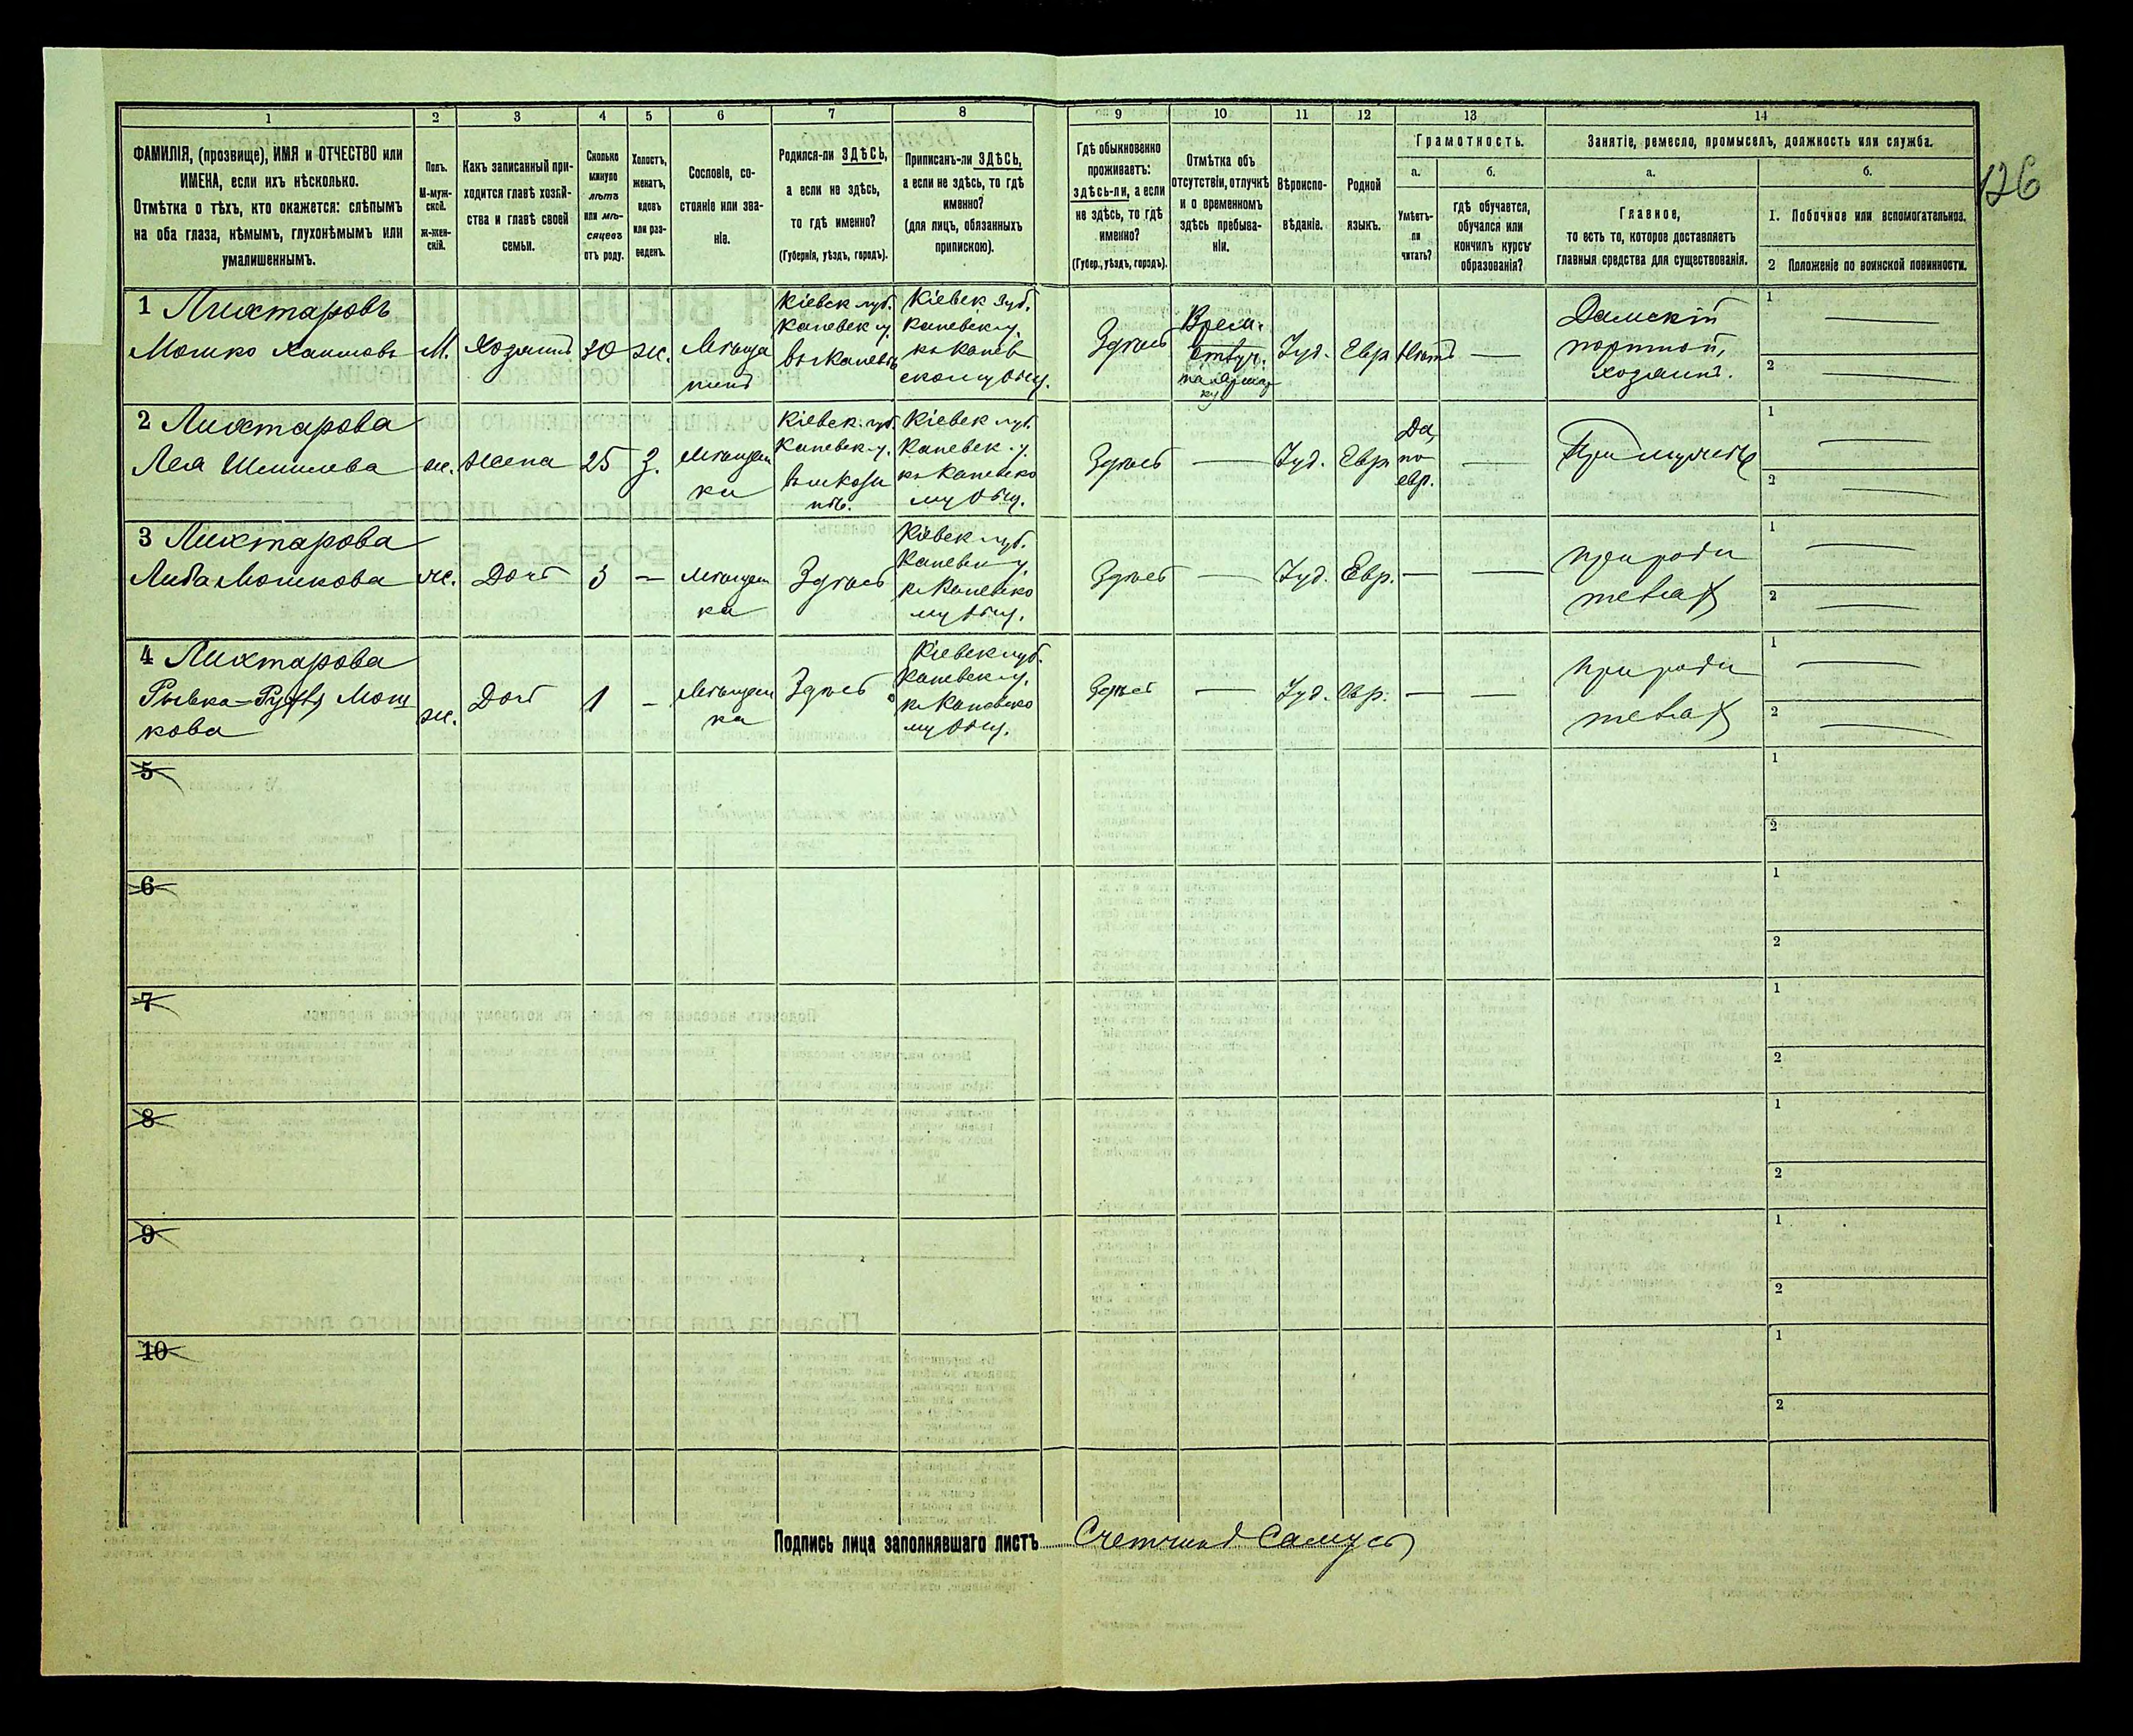 1
2
3
4
5
6
7
8
9
10
11
12
13
14
ФАМИЛІЯ, (прозвище), ИМЯ и ОТЧЕСТВО или
ИМЕНА, если ихъ нѣсколько.
Отмѣтка о тѣхъ, кто окажется: слѣпымъ
на оба глаза, нѣмымъ, глухонѣмымъ или
умалишеннымъ.
Полъ.
М-муж-
ской.
ж-жен-
скій.
Какъ записанный при-
ходится главѣ хозяй-
ства и главѣ своей
семьи.
Сколько
минуло
лѣтъ
или мѣ-
сяцевъ
отъ роду.
Холостъ,
женатъ,
вдовъ
или раз-
веденъ.
Сословіе, со-
стояніе или зва-
ніе.
Родился-ли ЗДѢСЬ,
а если не здѣсь,
то гдѣ именно?
(Губернія, уѣздъ, городъ).
Приписанъ-ли ЗДѢСЬ,
а если не здѣсь, то гдѣ
именно?
(для лицъ, обязанныхъ
припискою).
Гдѣ обыкновенно
проживаетъ:
здѣсь-ли, а если
не здѣсь, то гдѣ
именно?
(Губер., уѣздъ, городъ).
Отмѣтка объ
отсутствіи, отлучкѣ
и о временномъ
здѣсь пребыва-
ніи.
Вѣроиспо-
вѣданіе.
Родной
языкъ.
Грамотность.
а.
Умѣетъ-
ли
читать?
б.
гдѣ обучается,
обучался или
кончилъ курсъ
образованія?
Занятіе, ремесло, промыселъ, должность или служба.
а.
Главное,
то есть то, которое доставляетъ
главныя средства для существованія.
б.
1. Побочное или вспомогательное.
2 Положеніе по воинской повинности.
126
1 Лихтаровъ
Мошко Хаимовъ
М.
Хозяинъ
30
ж.
Мѣща
нинъ
Кіевск губ.
Каневск у.
въ Каневѣ
Кіевск губ.
Каневск у.
къ Канев
скому Общ.
Здѣсь
Врем.
отлуч.
на ярмар
ку
Іуд.
Евр
Нѣтъ
—
Дамскій
портной,
хозяинъ.
1 —
2 —
2 Лихтарова
Лея
ж.
Жена
25
З.
Мѣщан
ка
Кіевск. губ.
Каневск. у.
Кіевск губ.
Каневск. у.
къ Каневско
му Общ.
Здѣсь
—
Іуд.
Евр
Да,
по
евр.
—
При мужѣ
1 —
2 —
3 Лихтарова
Либа Мошкова
ж.
Дочь
3
—
Мѣщан
ка
Здѣсь
Кіевск губ.
Каневск у.
къ Каневско
му Общ.
Здѣсь
—
Іуд.
Евр.
—
—
при роди
теляхъ
1 —
2 —
4 Лихтарова
Мош
кова
ж.
Дочь
1
-
Мѣщан
ка
Здѣсь
Кіевск губ.
Каневск у.
къ Каневско
му Общ.
Здѣсь
—
Іуд.
евр.
—
—
при роди
теляхъ
1 —
2 —
5
1
2
6
1
2
7
1
2
8
1
2
9
1
2
10
1
2
Подпись лица заполнявшаго листъ Счетчикъ Самусь